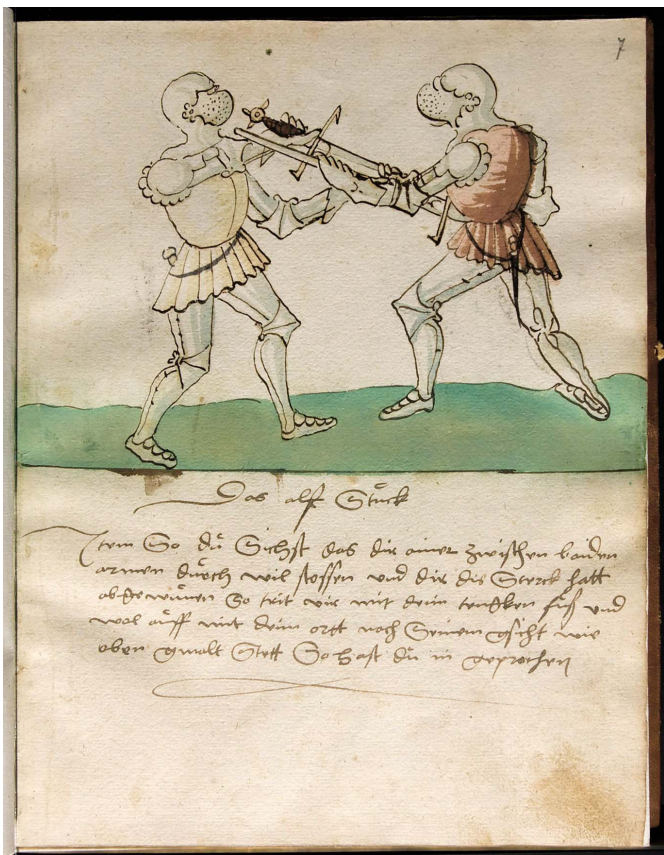 7
Das ailft Stuck
Item So dü Sichst das dir ainer zwischen baiden
armen dürch wil stossen vnd dir die Sterck hatt
ab gewünen So trit mit deim lincken füs vnd
wol aüff mit deim ortt nach Seinem gsicht wie
oben gmalt Stett So hast dü in geprochen